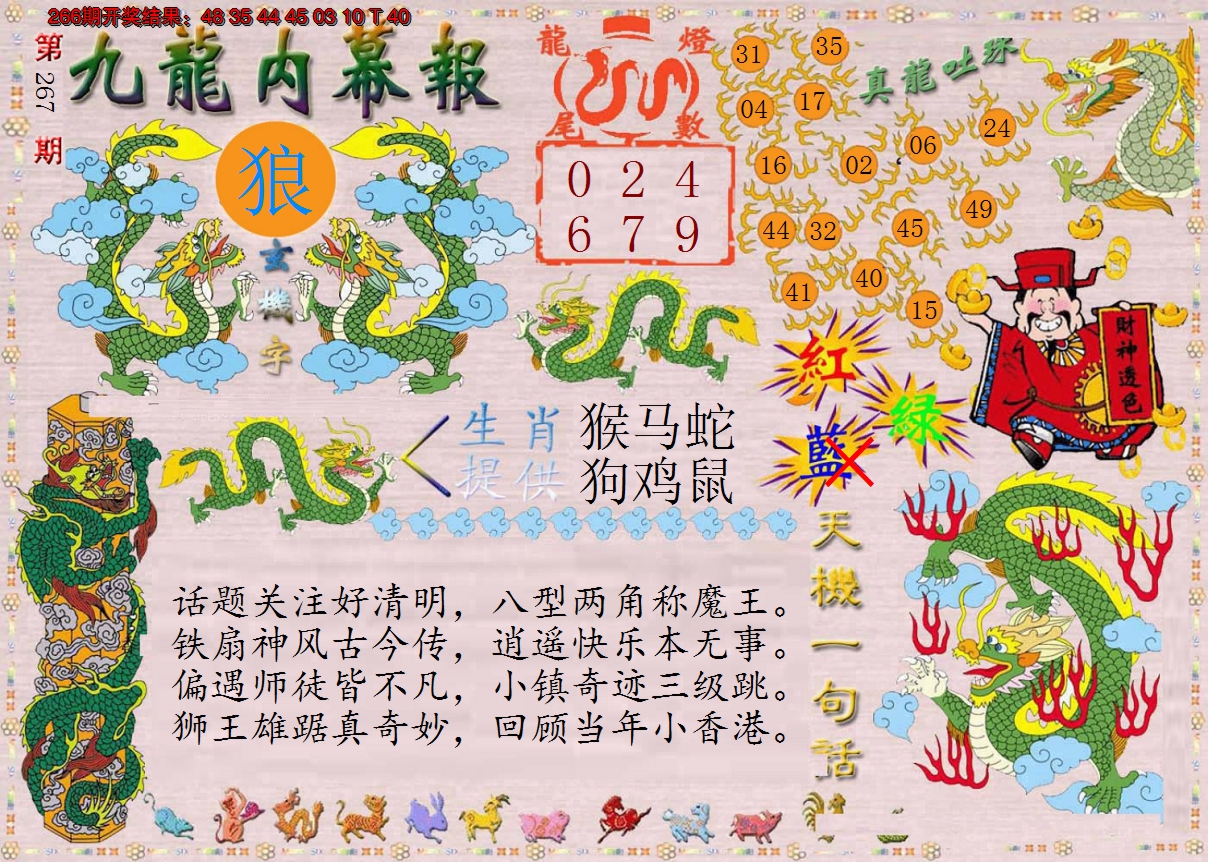 266期开奖结果：48 35 44 45 03 10 T 40
第267期
九龍内幕報
狼
玄機字
龍燈
尾數
0 2 4
6 7 9
真龍吐珠
31 35
04 17
16 02 06 24
44 32 45 49
41 40 15
財神透色
紅
綠
藍
生肖 猴马蛇
提供 狗鸡鼠
天機一句話
话题关注好清明，八型两角称魔王。
铁扇神风古今传，逍遥快乐本无事。
偏遇师徒皆不凡，小镇奇迹三级跳。
狮王雄踞真奇妙，回顾当年小香港。